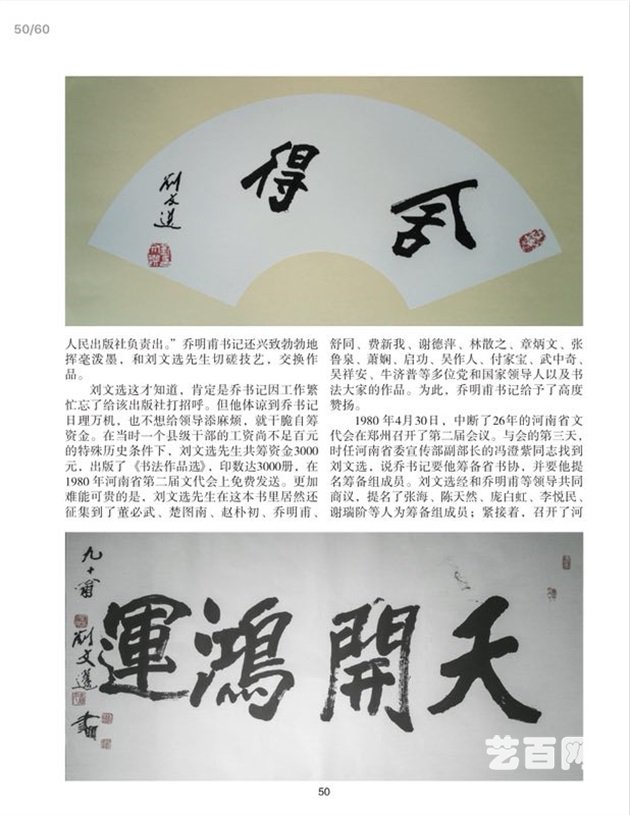 50/60
舍得
刘文选
人民出版社负责出。”乔明甫书记还兴致勃勃地
挥毫泼墨，和刘文选先生切磋技艺，交换作
品。
刘文选这才知道，肯定是乔书记因工作繁
忙忘了给该出版社打招呼。但他体谅到乔书记
日理万机，也不想给领导添麻烦，就干脆自筹
资金。在当时一个县级干部的工资尚不足百元
的特殊历史条件下，刘文选先生共筹资金3000
元，出版了《书法作品选》，印数达3000册，在
1980年河南省第二届文代会上免费发送。更加
难能可贵的是，刘文选先生在这本书里居然还
征集到了董必武、楚图南、赵朴初、乔明甫、
舒同、费新我、谢德萍、林散之、章炳文、张
鲁泉、萧娴、启功、吴作人、付家宝、武中奇、
吴祥安、牛济普等多位党和国家领导人以及书
法大家的作品。为此，乔明甫书记给予了高度
赞扬。
1980 年4月30日，中断了26年的河南省文
代会在郑州召开了第二届会议。与会的第三天，
时任河南省委宣传部副部长的冯澄紫同志找到
刘文选，说乔书记要他筹备省书协，并要他提
名筹备组成员。刘文选经和乔明甫等领导共同
商议，提名了张海、陈天然、庞白虹、李悦民、
谢瑞阶等人为筹备组成员；紧接着，召开了河
天開鴻運
九十翁
劉文選
書
艺百网
50